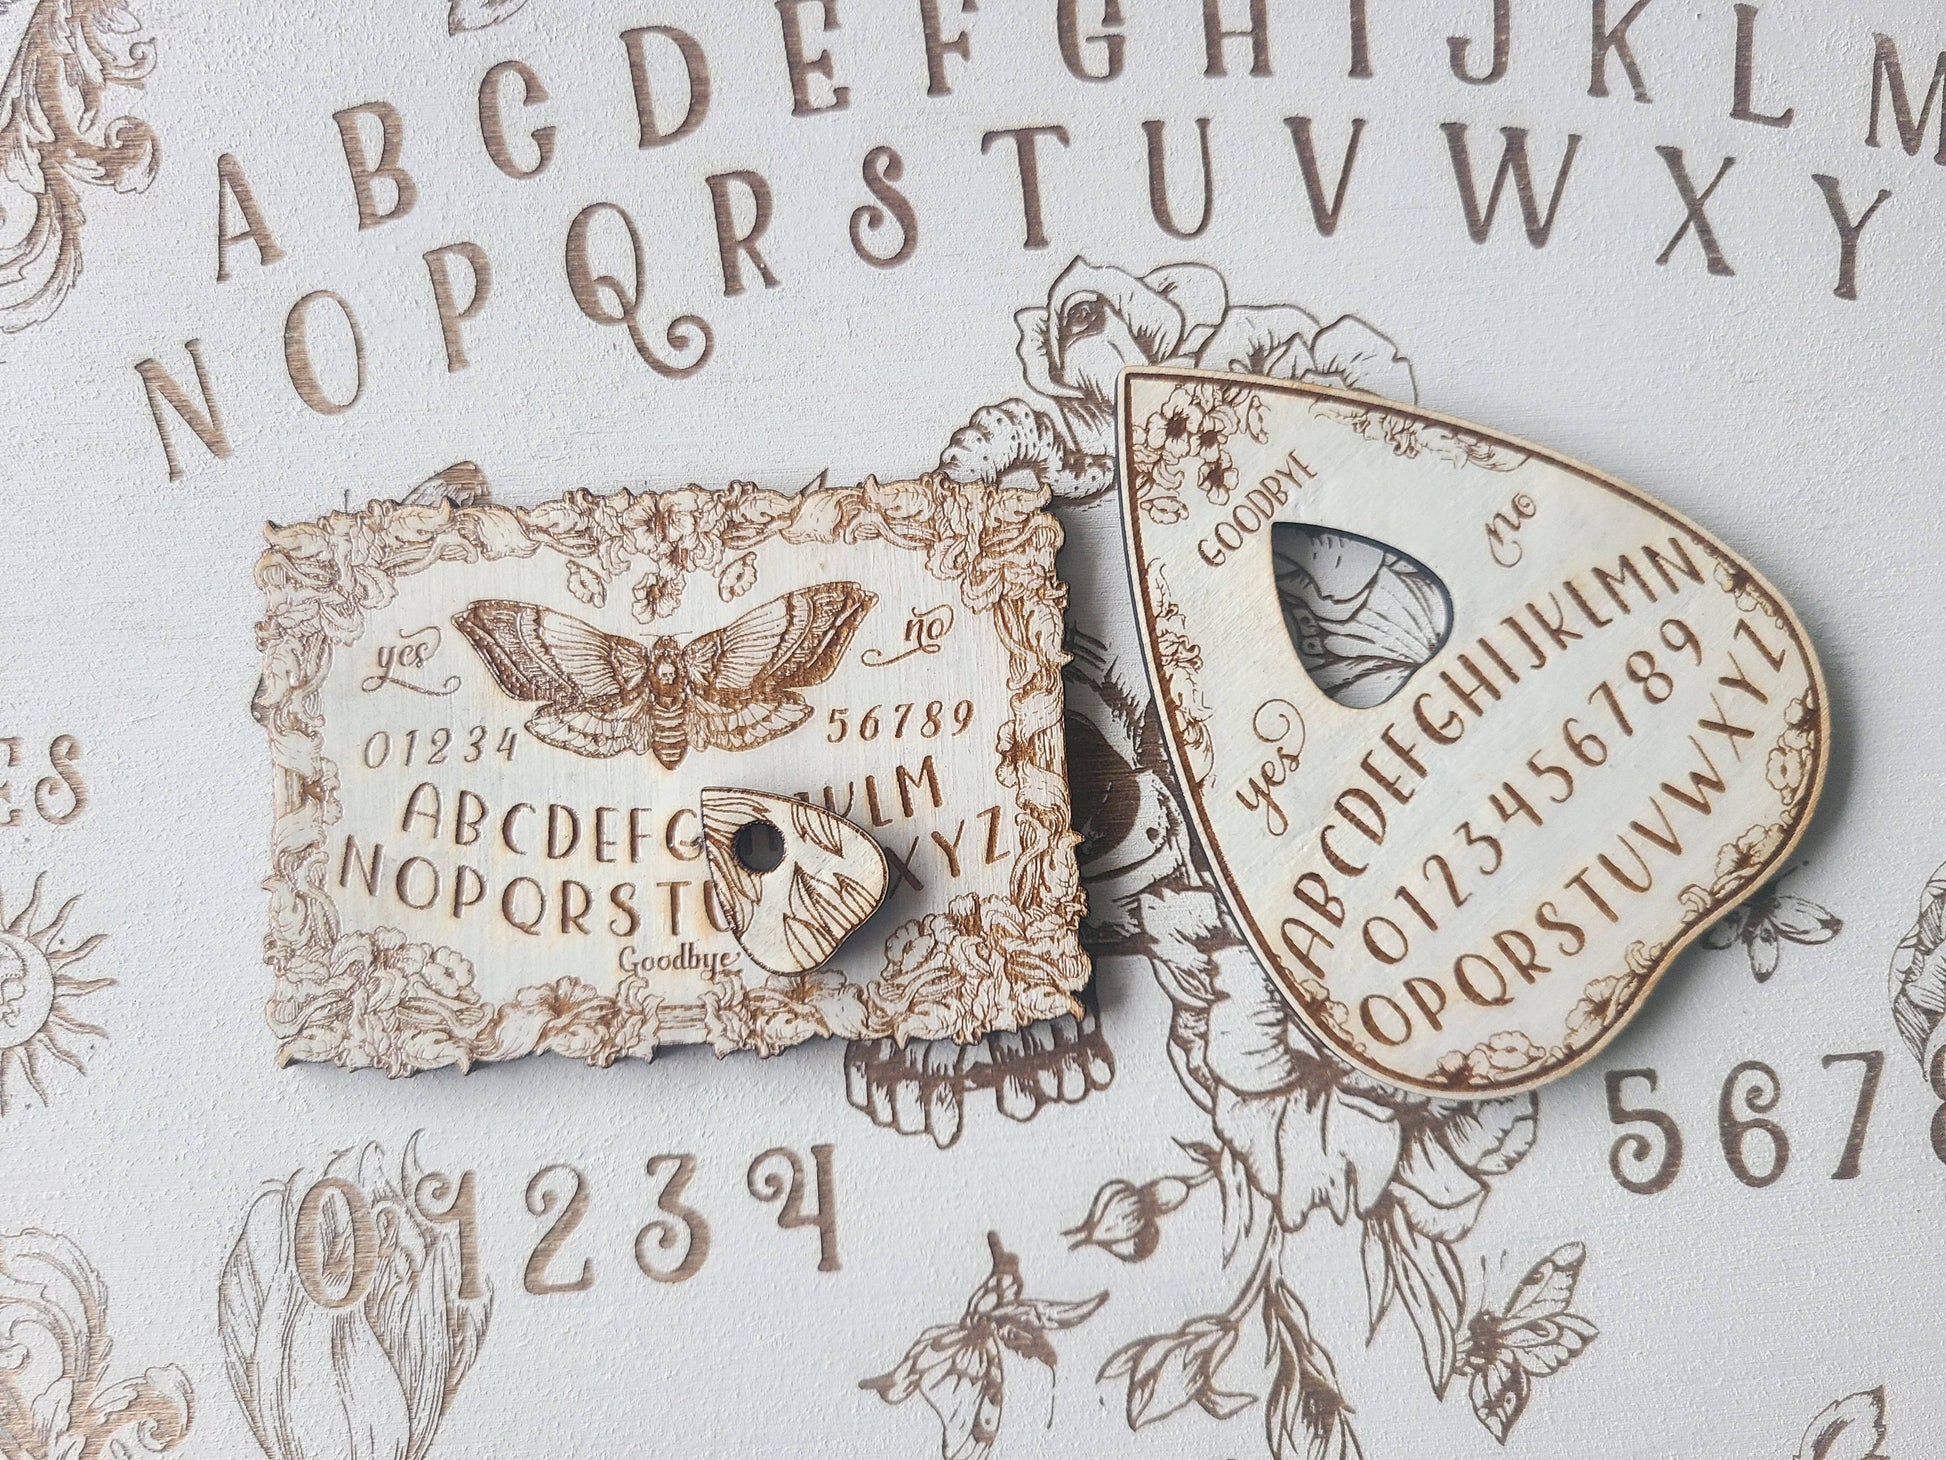 ABCDEFGHIJKLM
NOPQRSTUVWXY
ES
01234
5678
yes
no
01234
56789
ABCDEFG
KLM
NOPQRSTU
XYZ
Goodbye
GOODBYE
no
yes
ABCDEFGHIJKLMN
0123456789
OPQRSTUVWXYZ